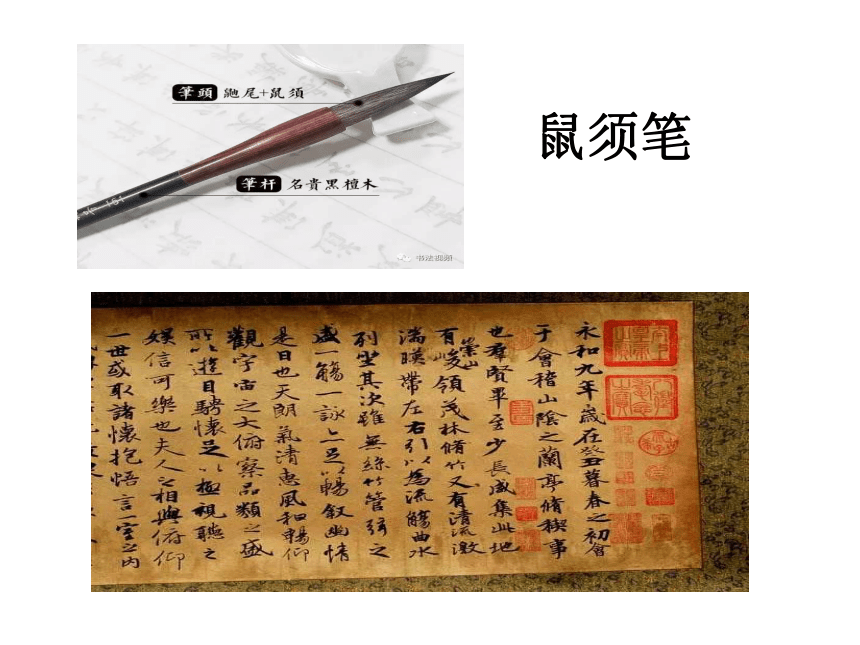 筆頭 鼬尾+鼠須
筆杆 名貴黑檀木
书法视频
鼠须笔
永和九年歲在癸丑暮春之初會
于會稽山陰之蘭亭脩稧事
也羣賢畢至少長咸集此地
有崇山峻領茂林脩竹又有清流激
湍暎帶左右引以為流觴曲水
列坐其次雖無絲竹管弦之
盛一觴一詠亦足以暢敘幽情
是日也天朗氣清惠風和暢仰
觀宇宙之大俯察品類之盛
所以遊目騁懷足以極視聽之
娛信可樂也夫人之相與俯仰
一世或取諸懷抱悟言一室之內